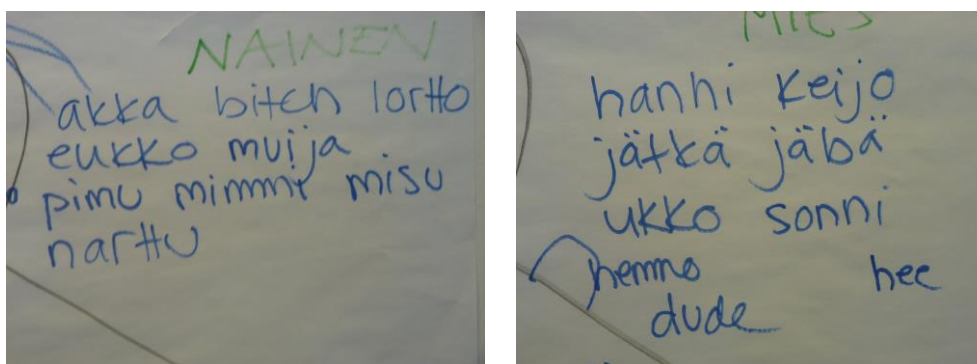 NAINEN
akka bitch lortto
eukko muija
pimu mimmi misu
narttu
MIES
hanhi keijo
jätkä jäbä
ukko sonni
hemmo hee
dude